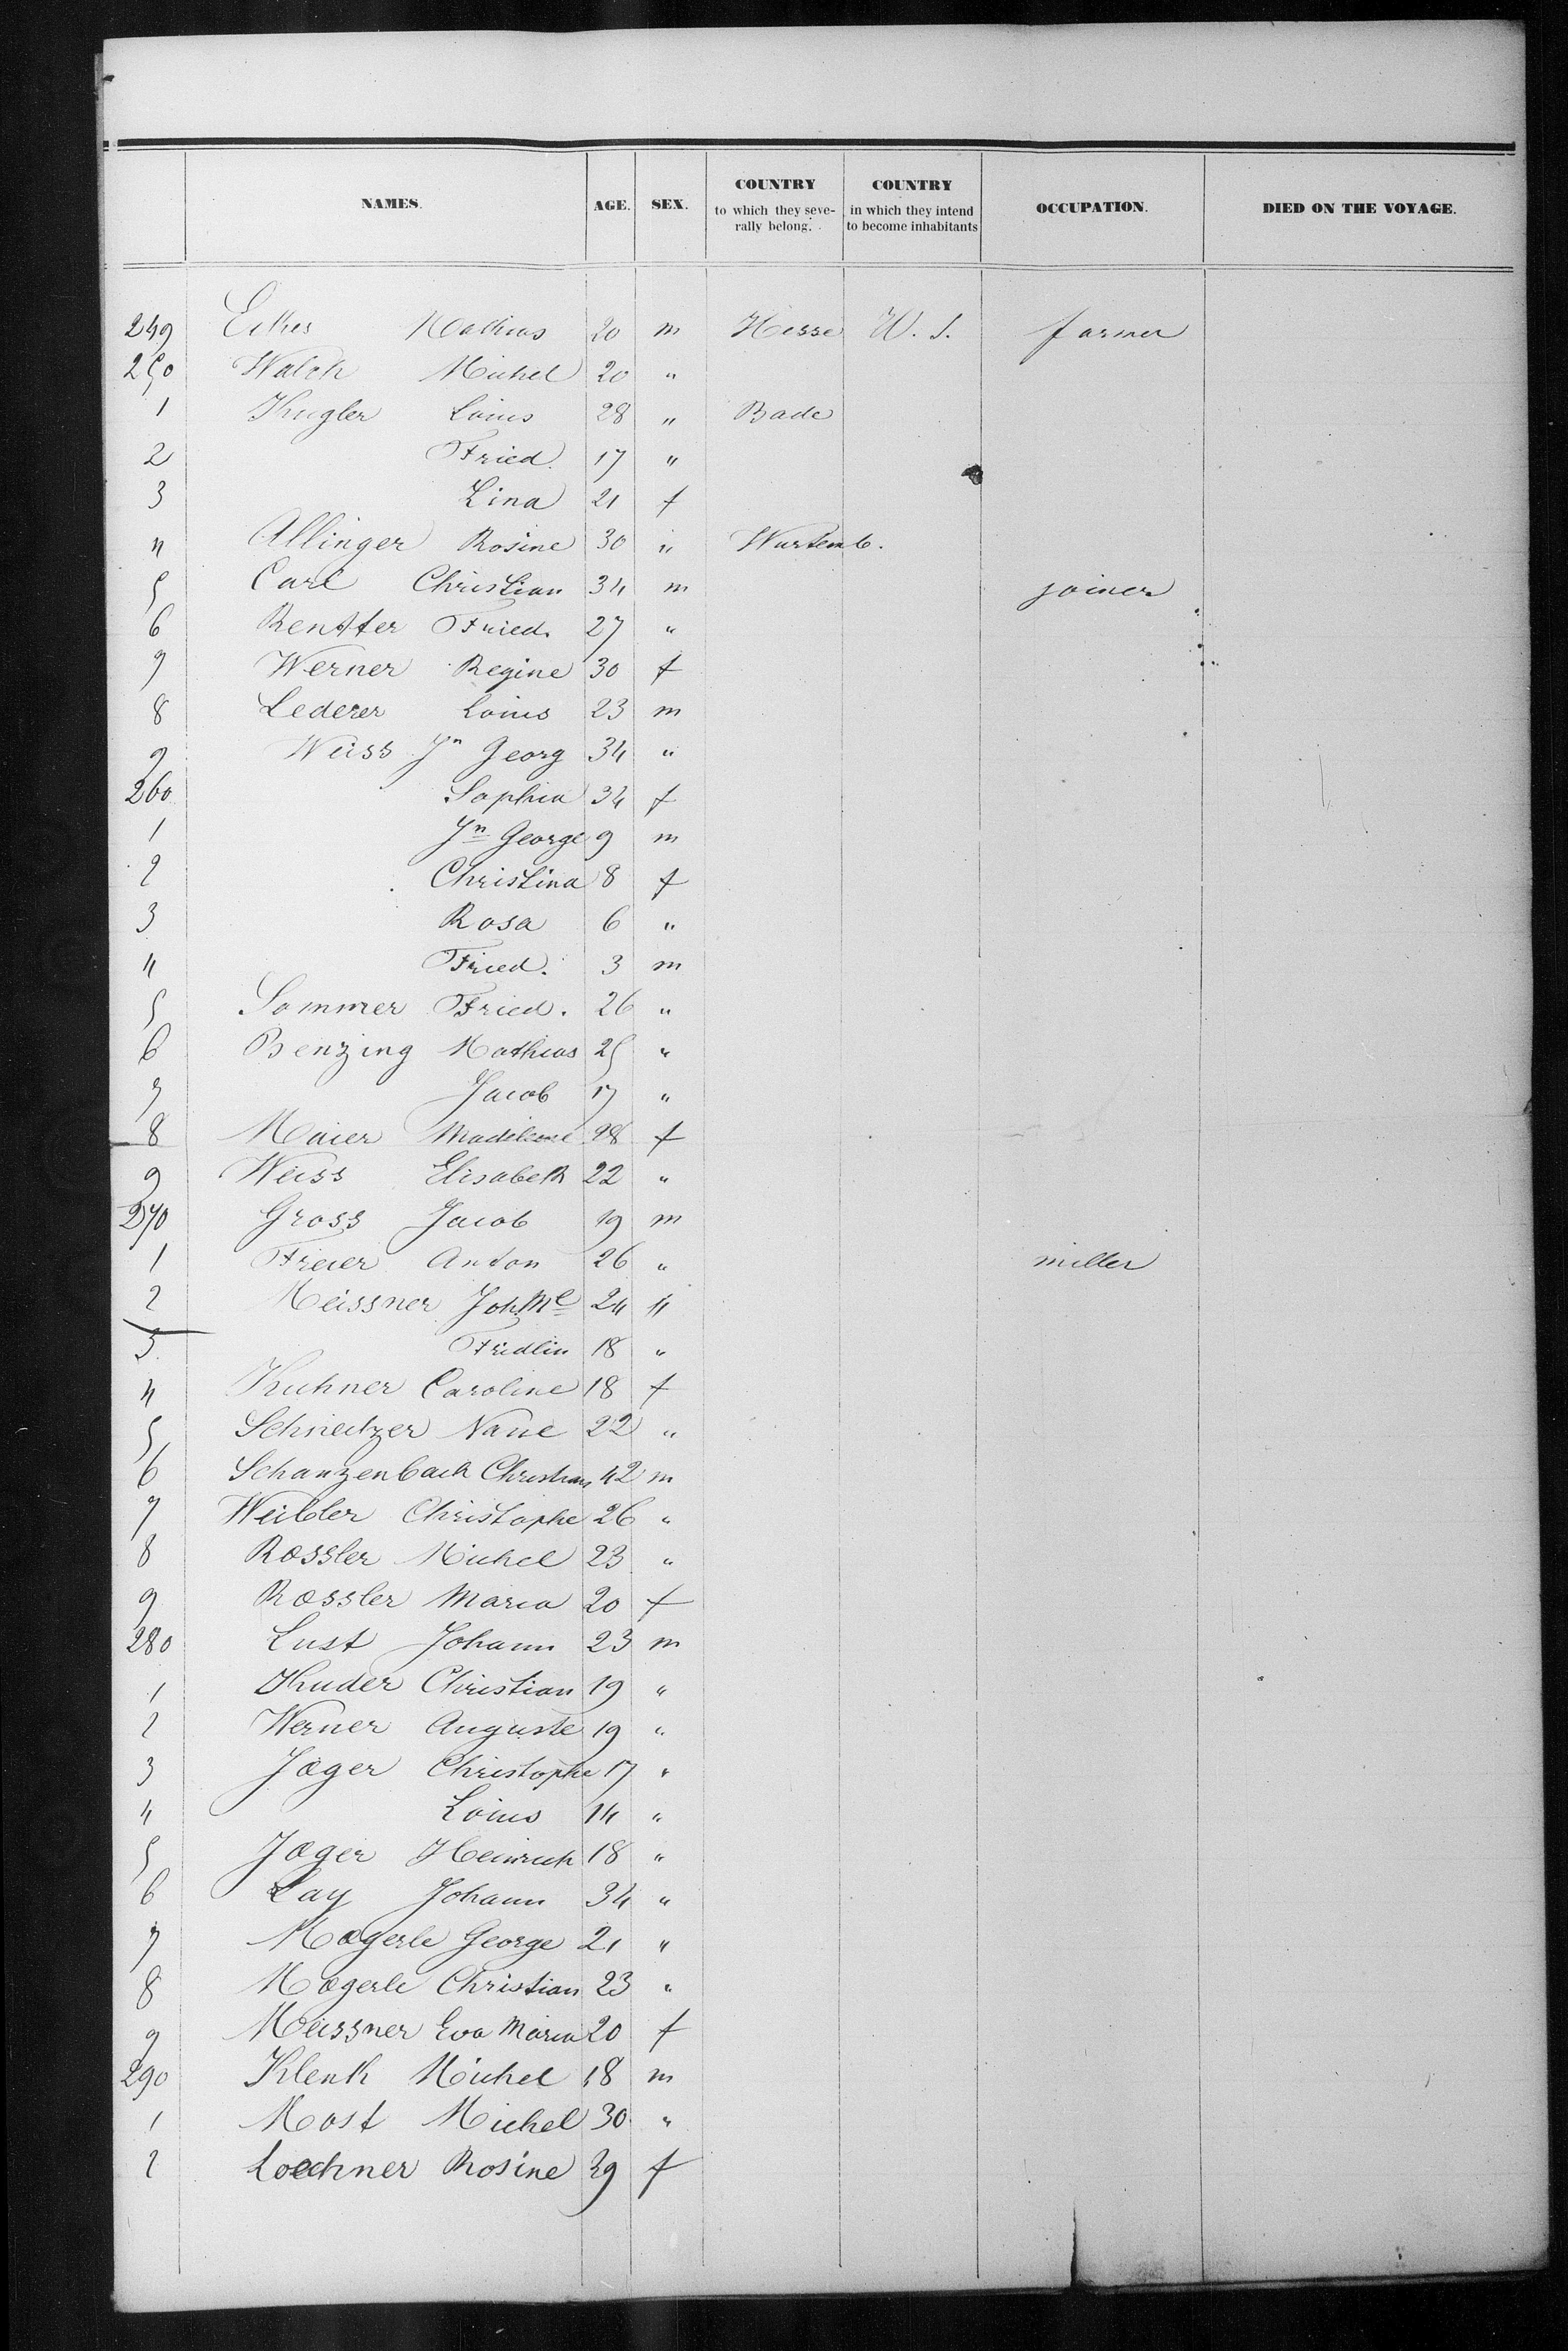 NAMES. AGE. SEX. COUNTRY to which they seve- rally belong. COUNTRY in which they intend to become inhabitants OCCUPATION. DIED ON THE VOYAGE.
249 Mathias 20 m Hesse U. S. farmer
250 Walch Michel 20 "
1 Kugler Louis 28 " Bade
2 Fried. 17 "
3 Lina 21 f
4 Allinger Rosine 30 " Wurtemb.
5 Carl Christian 34 m joiner
6 Fried. 27 "
7 Werner Regine 30 f
8 Lederer Louis 23 m
9 Weiss Jn Georg 34 "
260 Sophia 34 f
1 Jn George 9 m
2 Christina 8 f
3 Rosa 6 "
4 Fried. 3 m
5 Sommer Fried. 26 "
6 Benzing Mathias 25 "
7 Jacob 17 "
8 Maier Madeleine 28 f
9 Weiss Elisabeth 22 "
270 Gross Jacob 19 m
1 Freier Anton 26 " miller
2 Meissner Joh. Ml 24 "
3 Fridlin 18 "
4 Kuhner Caroline 18 f
5 Schneitzer Nane 22 "
6 Schanzenbach Christian 42 m
7 Weibler Christophe 26 "
8 Rossler Michel 23 "
9 Rossler Maria 20 f
280 Lust Johann 23 m
1 Kuder Christian 19 "
2 Werner Auguste 19 "
3 Jæger Christophe 17 "
4 Louis 14 "
5 Jæger Heinrich 18 "
6 Lay Johann 34 "
7 Mægerle George 21 "
8 Mægerle Christian 23 "
9 Meissner Eva Maria 20 f
290 Klenk Michel 18 m
1 Most Michel 30 "
2 Loechner Rosine 39 f